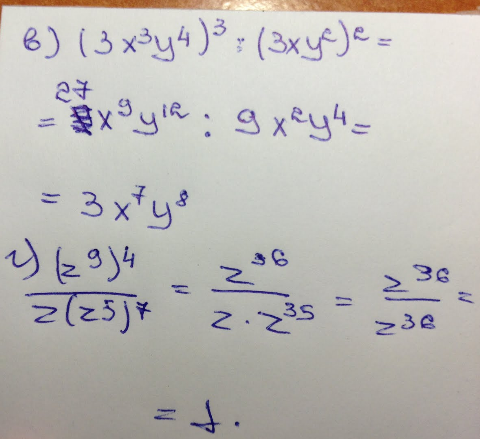 в) (3x³y⁴)³ : (3xy²)² =
= 27x⁹y¹² : 9x²y⁴ =
= 3x⁷y⁸
г) (z⁹)⁴ / z(z⁵)⁷ = z³⁶ / z · z³⁵ = z³⁶ / z³⁶ =
= 1.